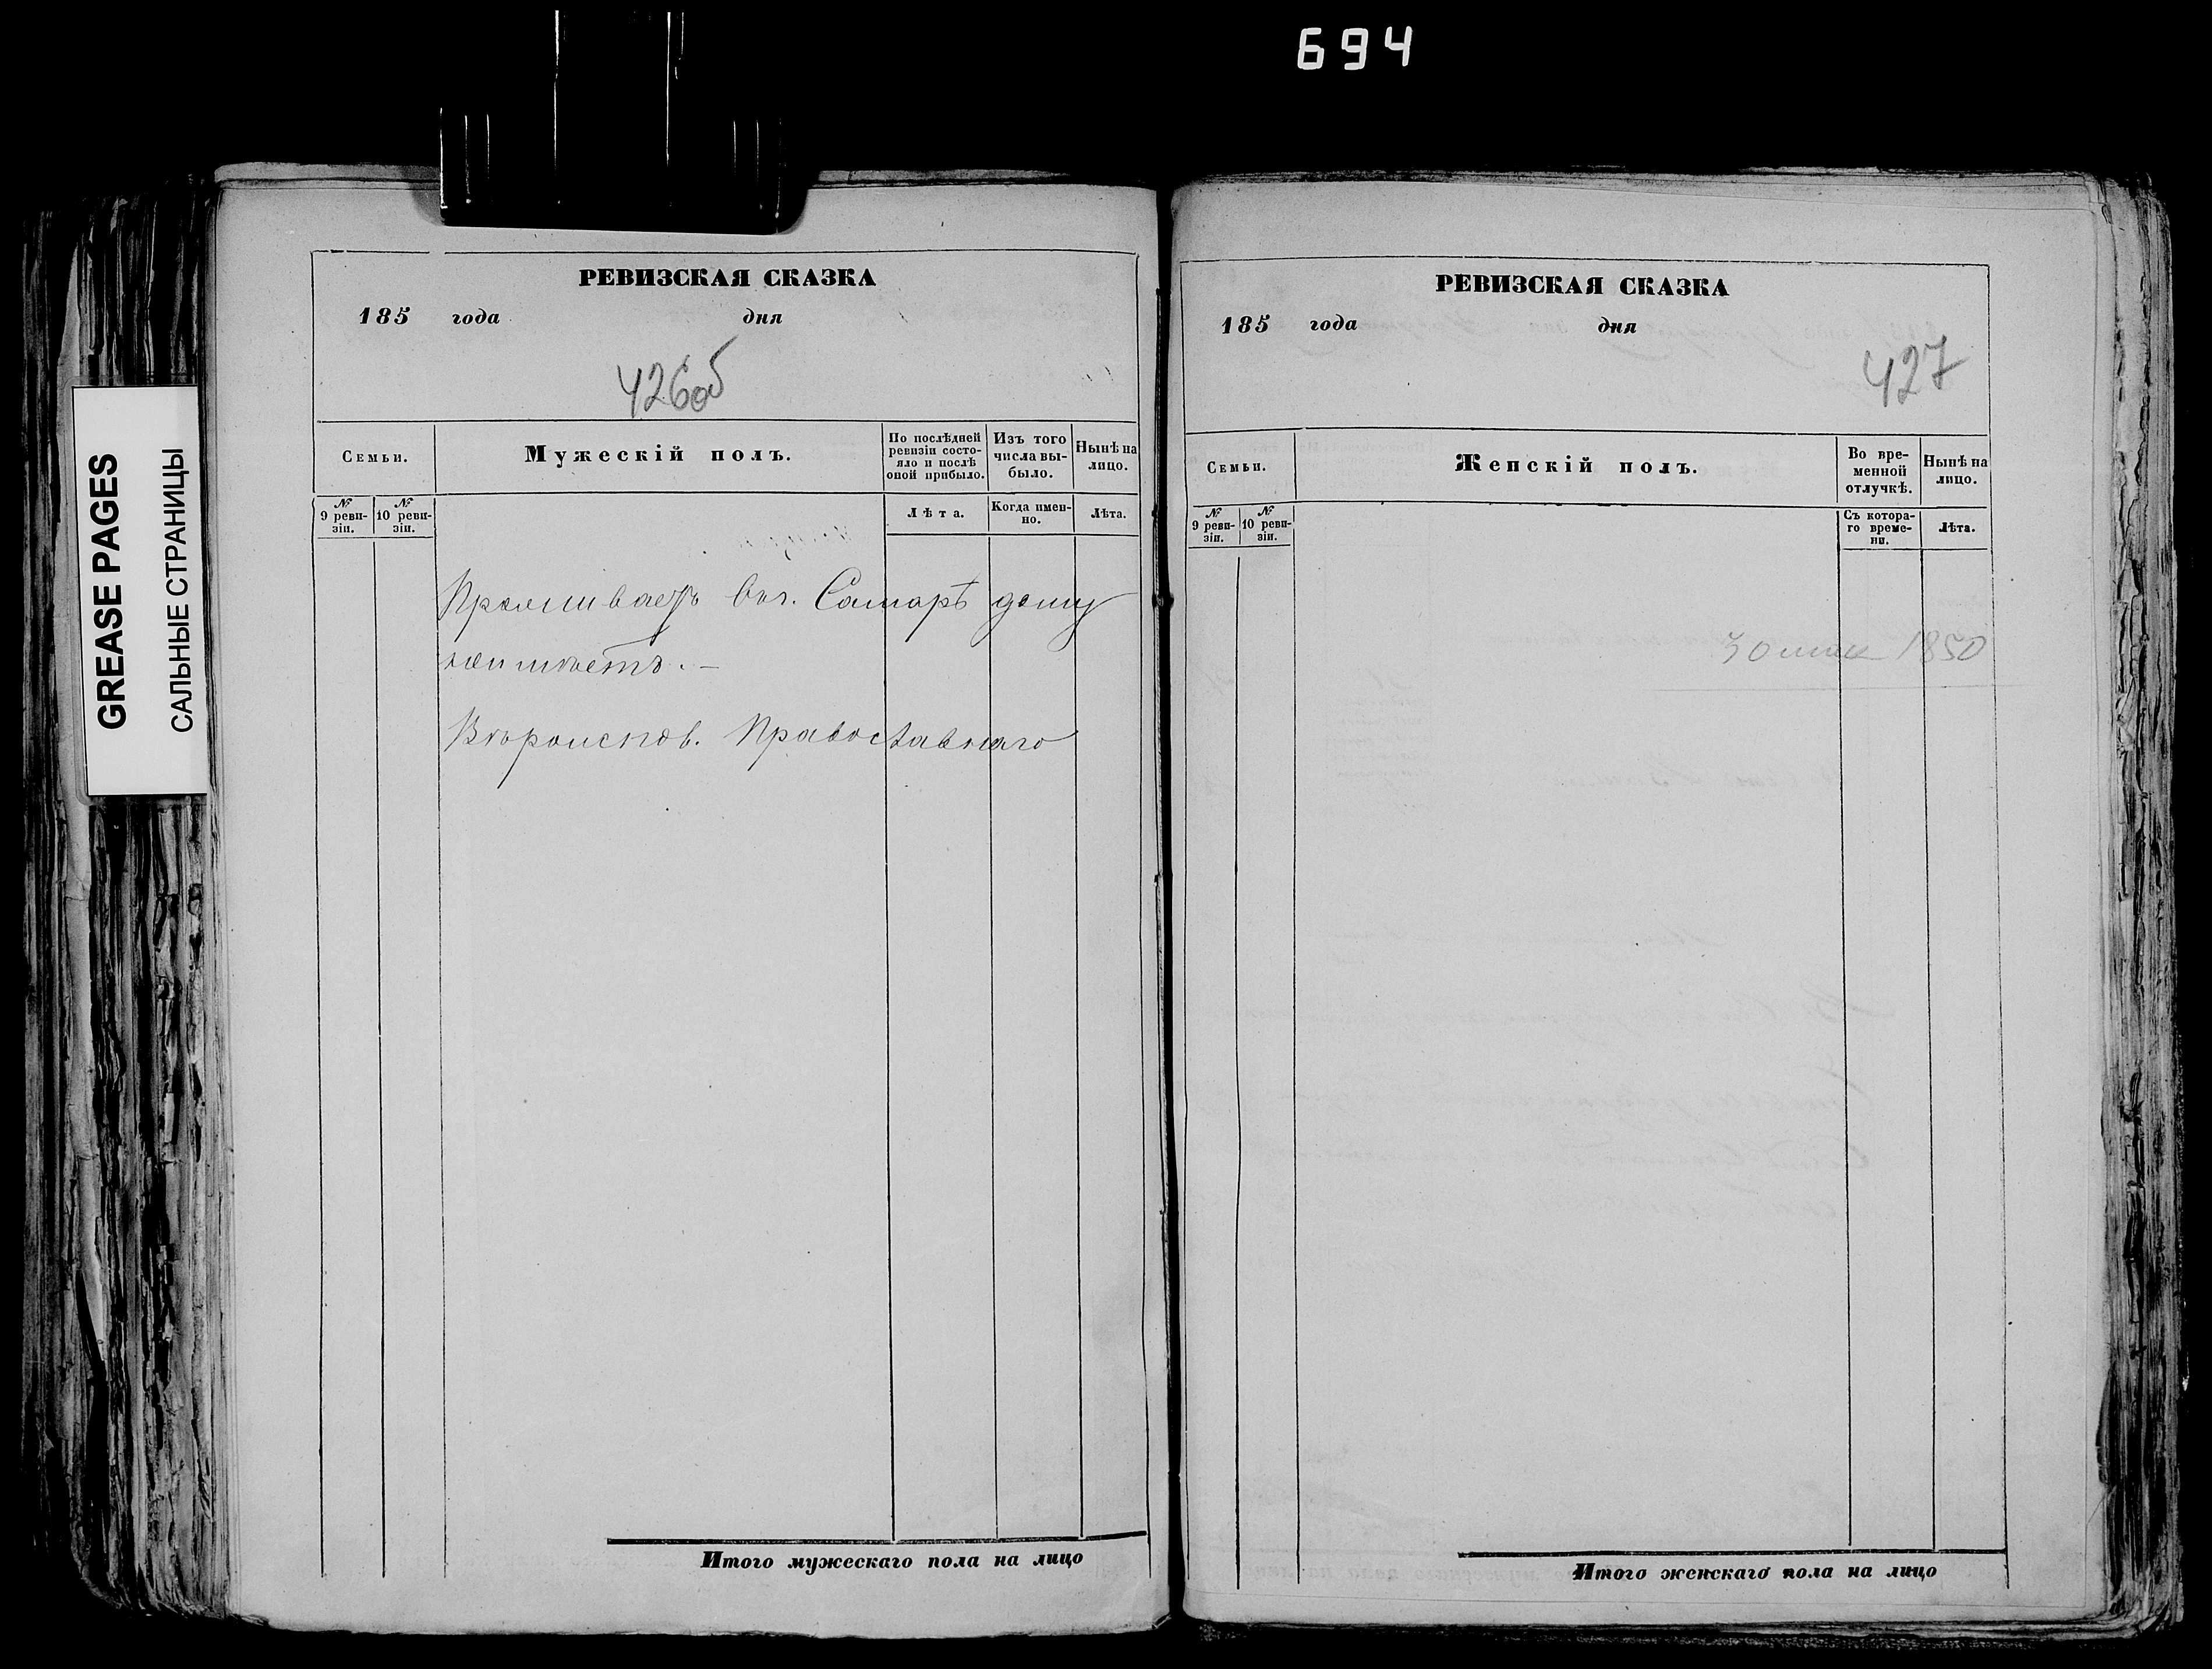 694
GREASE PAGES
САЛЬНЫЕ СТРАНИЦЫ
РЕВИЗСКАЯ СКАЗКА
185 года дня
426об
Семьи.
Мужескій полъ.
По послѣдней
ревизіи состо-
яло и послѣ
оной прибыло.
Изъ того
числа вы-
было.
Нынѣ на
лицо.
№
9 реви-
зіи.
№
10 реви-
зіи.
Лѣта.
Когда имен-
но.
Лѣта.
Проживаетъ въ г. Самарѣ дому
неимѣетъ. —
Вѣроисков. Православнаго
Итого мужескаго пола на лицо
РЕВИЗСКАЯ СКАЗКА
185 года дня
427
Семьи.
Женскій полъ.
Во вре-
менной
отлучкѣ.
Нынѣ на
лицо.
№
9 реви-
зіи.
№
10 реви-
зіи.
Съ котора-
го време-
ни.
Лѣта.
1850
Итого женскаго пола на лицо